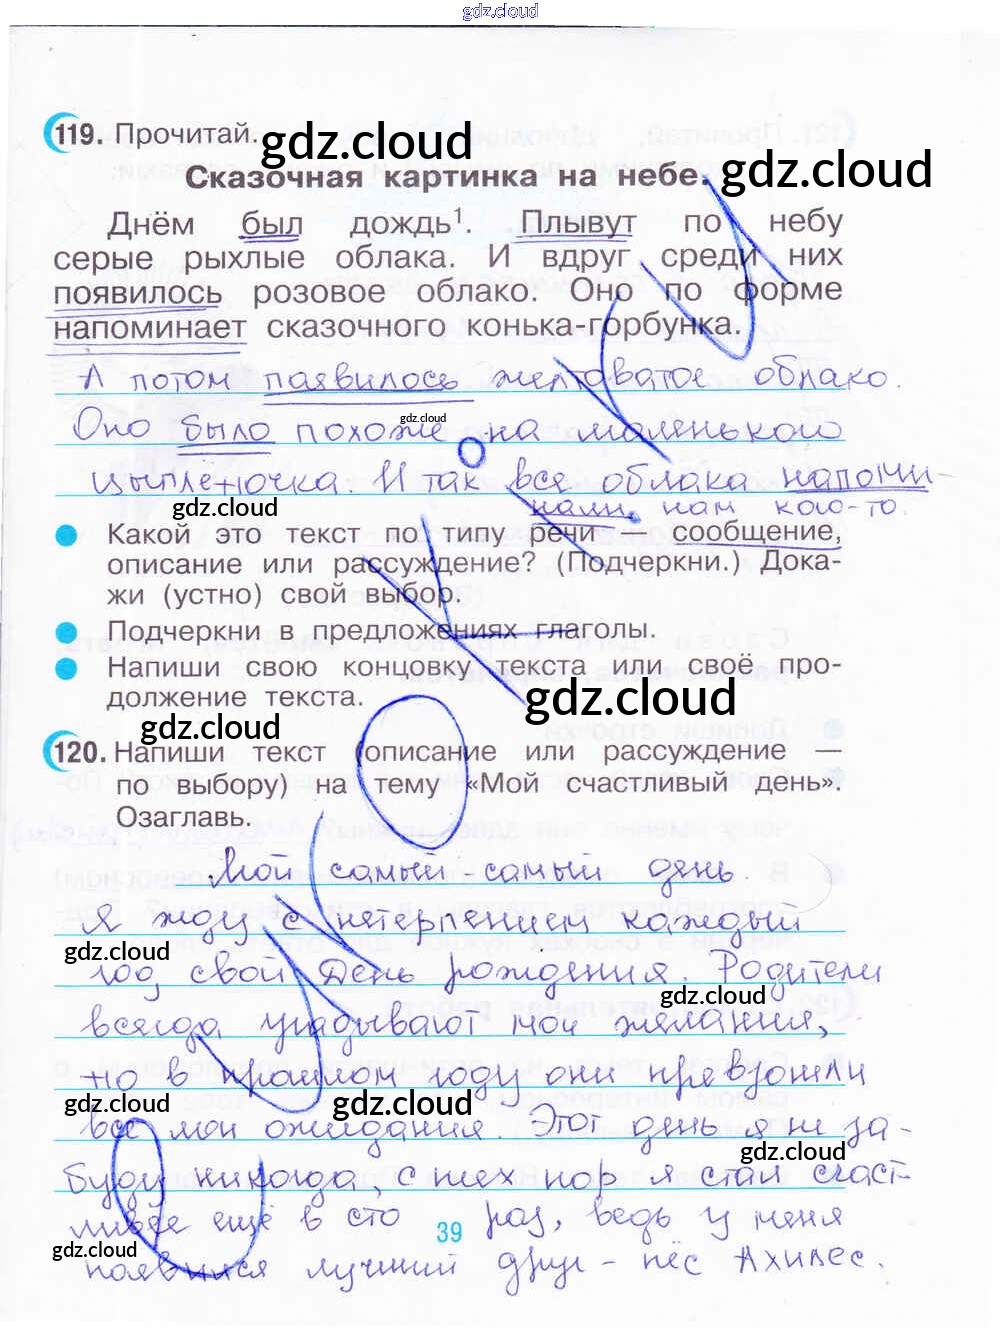 gdz.cloud
119. Прочитай.
gdz.cloud
Сказочная картинка на небе.
gdz.cloud
Днём был дождь¹. Плывут по небу
серые рыхлые облака. И вдруг среди них
появилось розовое облако. Оно по форме
напоминает сказочного конька-горбунка.
А потом появилось желтоватое облако.
gdz.cloud
Оно было похоже на маленького
цыплёночка. И так все облака напоми-
нали нам кого-то.
gdz.cloud
Какой это текст по типу речи — сообщение,
описание или рассуждение? (Подчеркни.) Дока-
жи (устно) свой выбор.
Подчеркни в предложениях глаголы.
Напиши свою концовку текста или своё про-
должение текста.
gdz.cloud
gdz.cloud
120. Напиши текст (описание или рассуждение —
по выбору) на тему «Мой счастливый день».
Озаглавь.
Мой самый самый день
Я жду с нетерпением каждый
gdz.cloud
год свой День рождения. Родители
gdz.cloud
всегда угадывают мои желания,
но в прошлом году они превзошли
gdz.cloud
gdz.cloud
все мои ожидания. Этот день я не за-
gdz.cloud
буду никогда, с тех пор я стал счаст-
ливее ещё в сто раз, ведь у меня
39
gdz.cloud
появился лучший друг - пёс Ахилес.